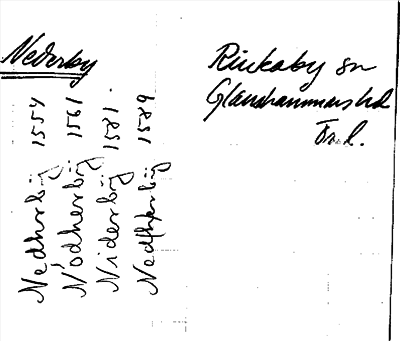 Nederby
Rinkaby sn
Glanshammars hd
Ör. l.
Nedhrby 1554
Nödherby 1561
Niderby 1581.
Nedherby 1589